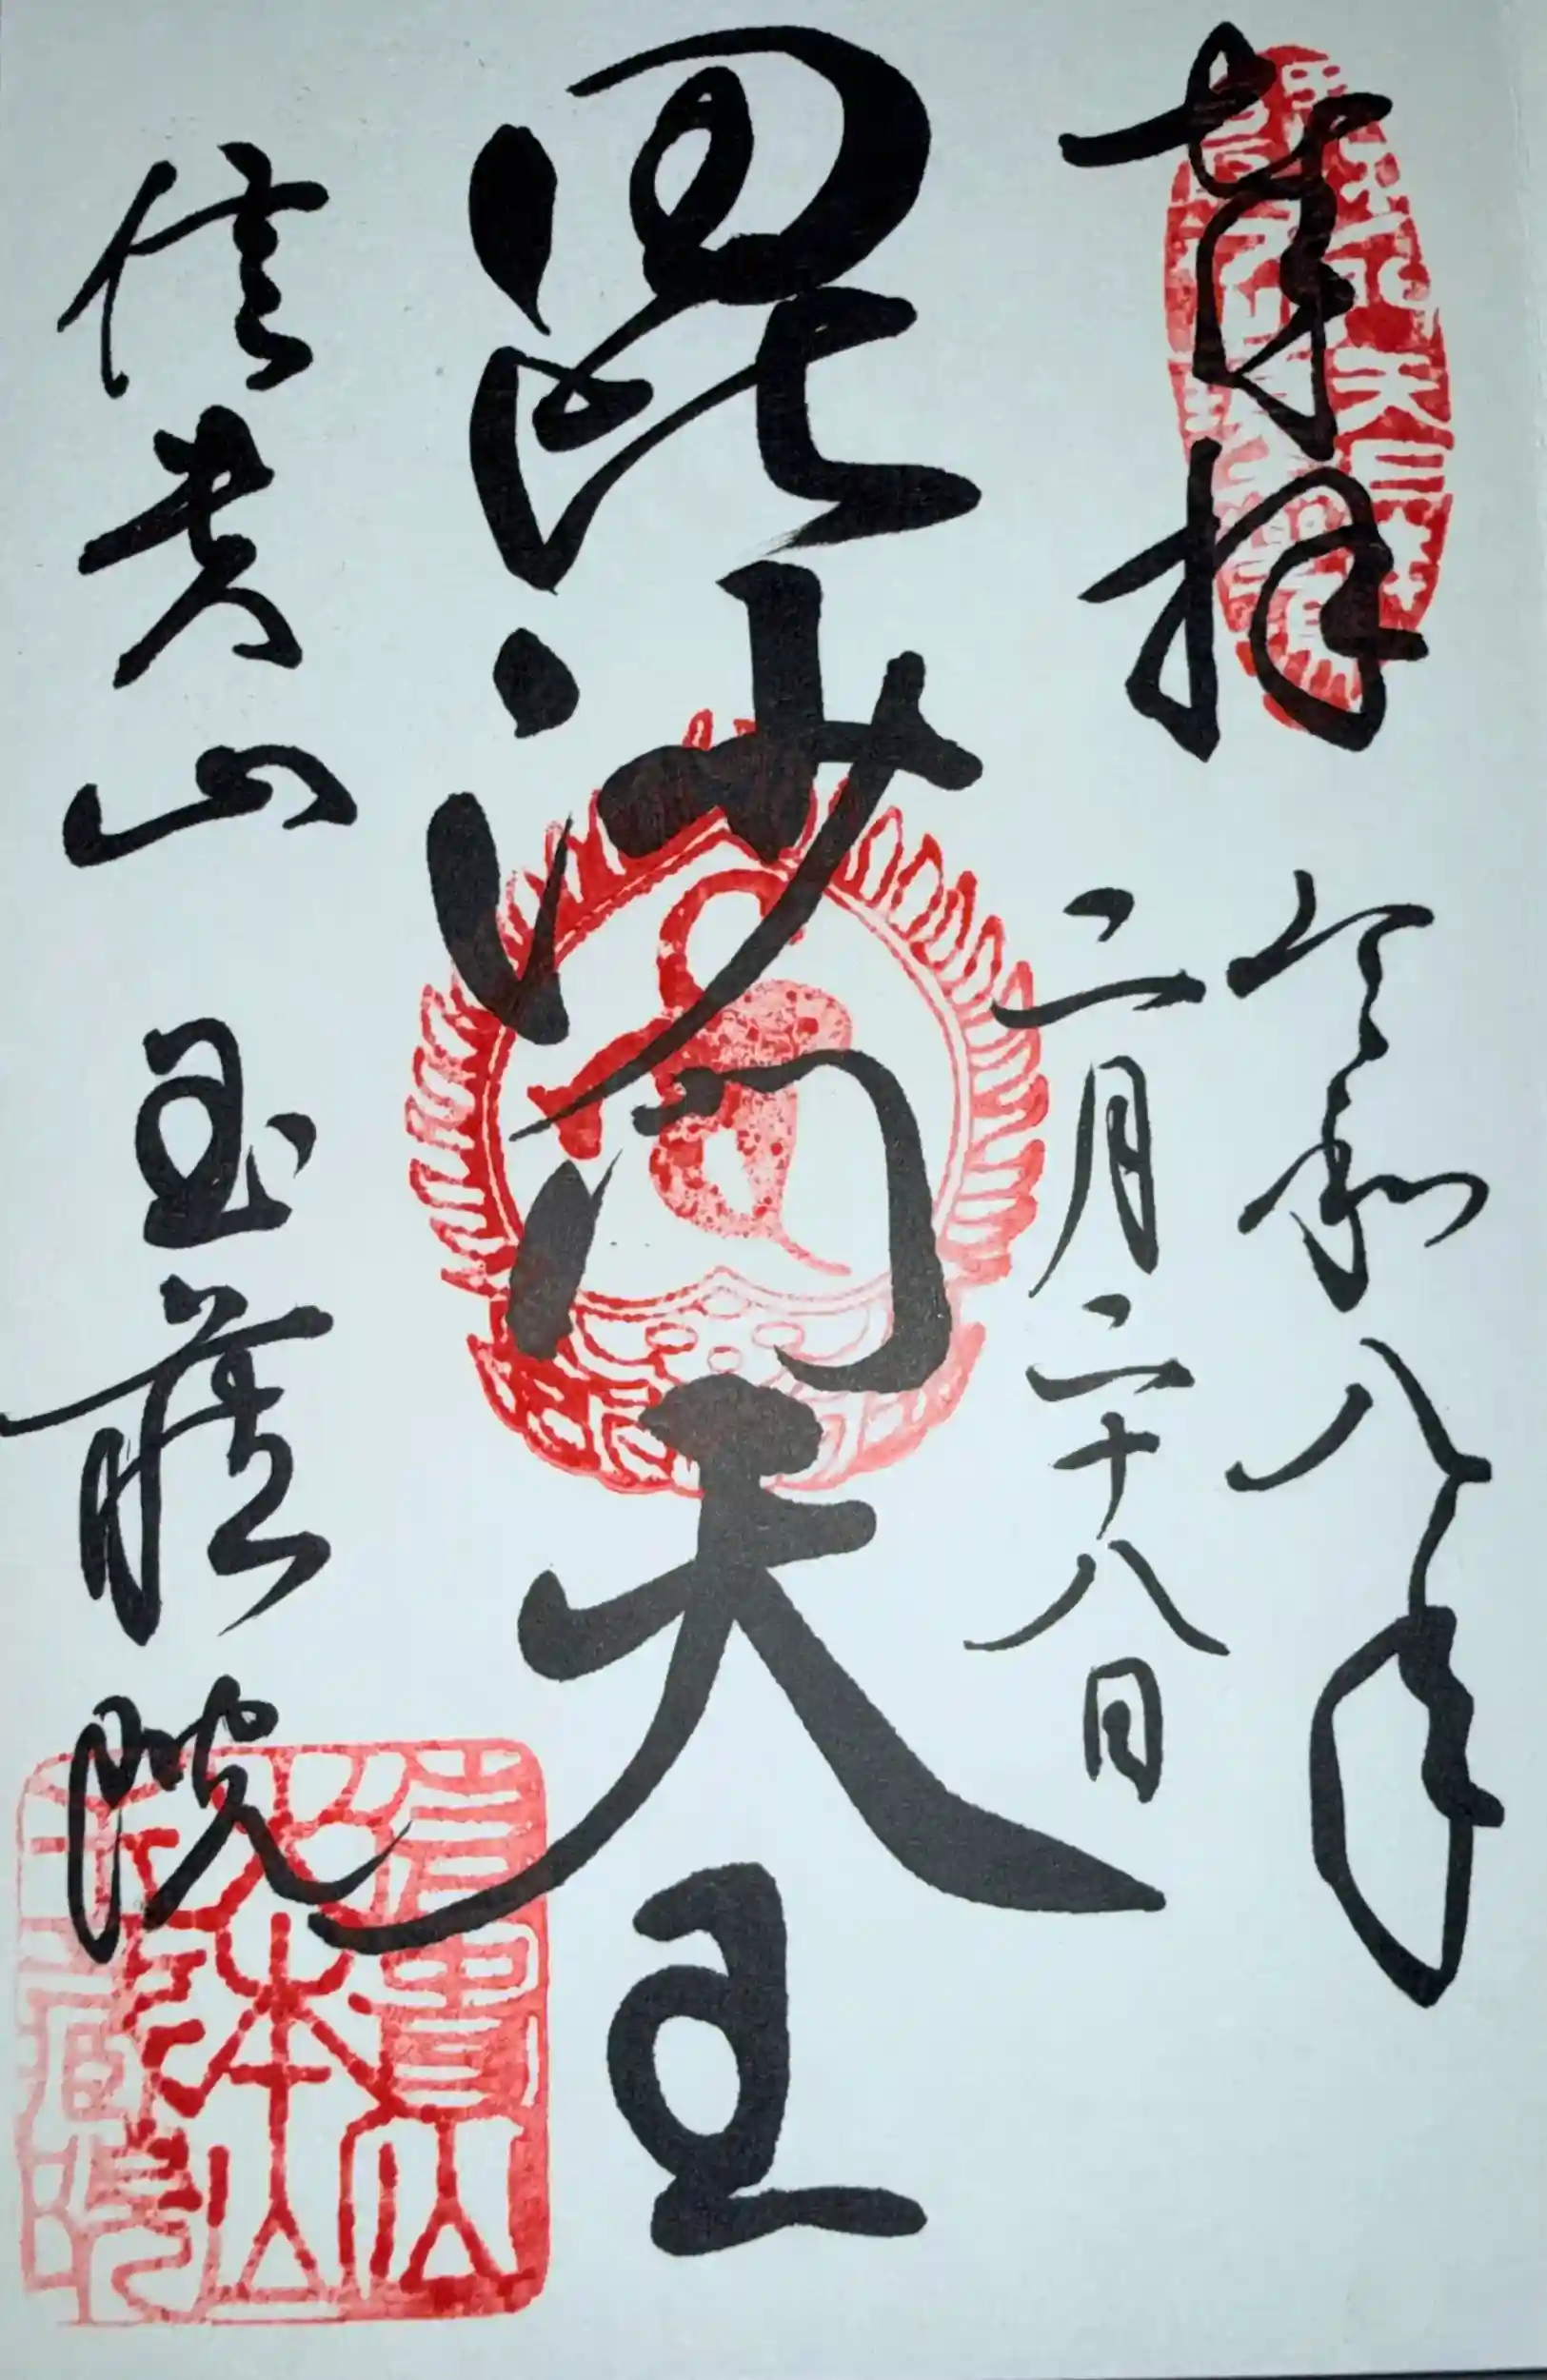 奉拝
令和八年
二月二十八日
毘沙門天王
信貴山 玉蔵院